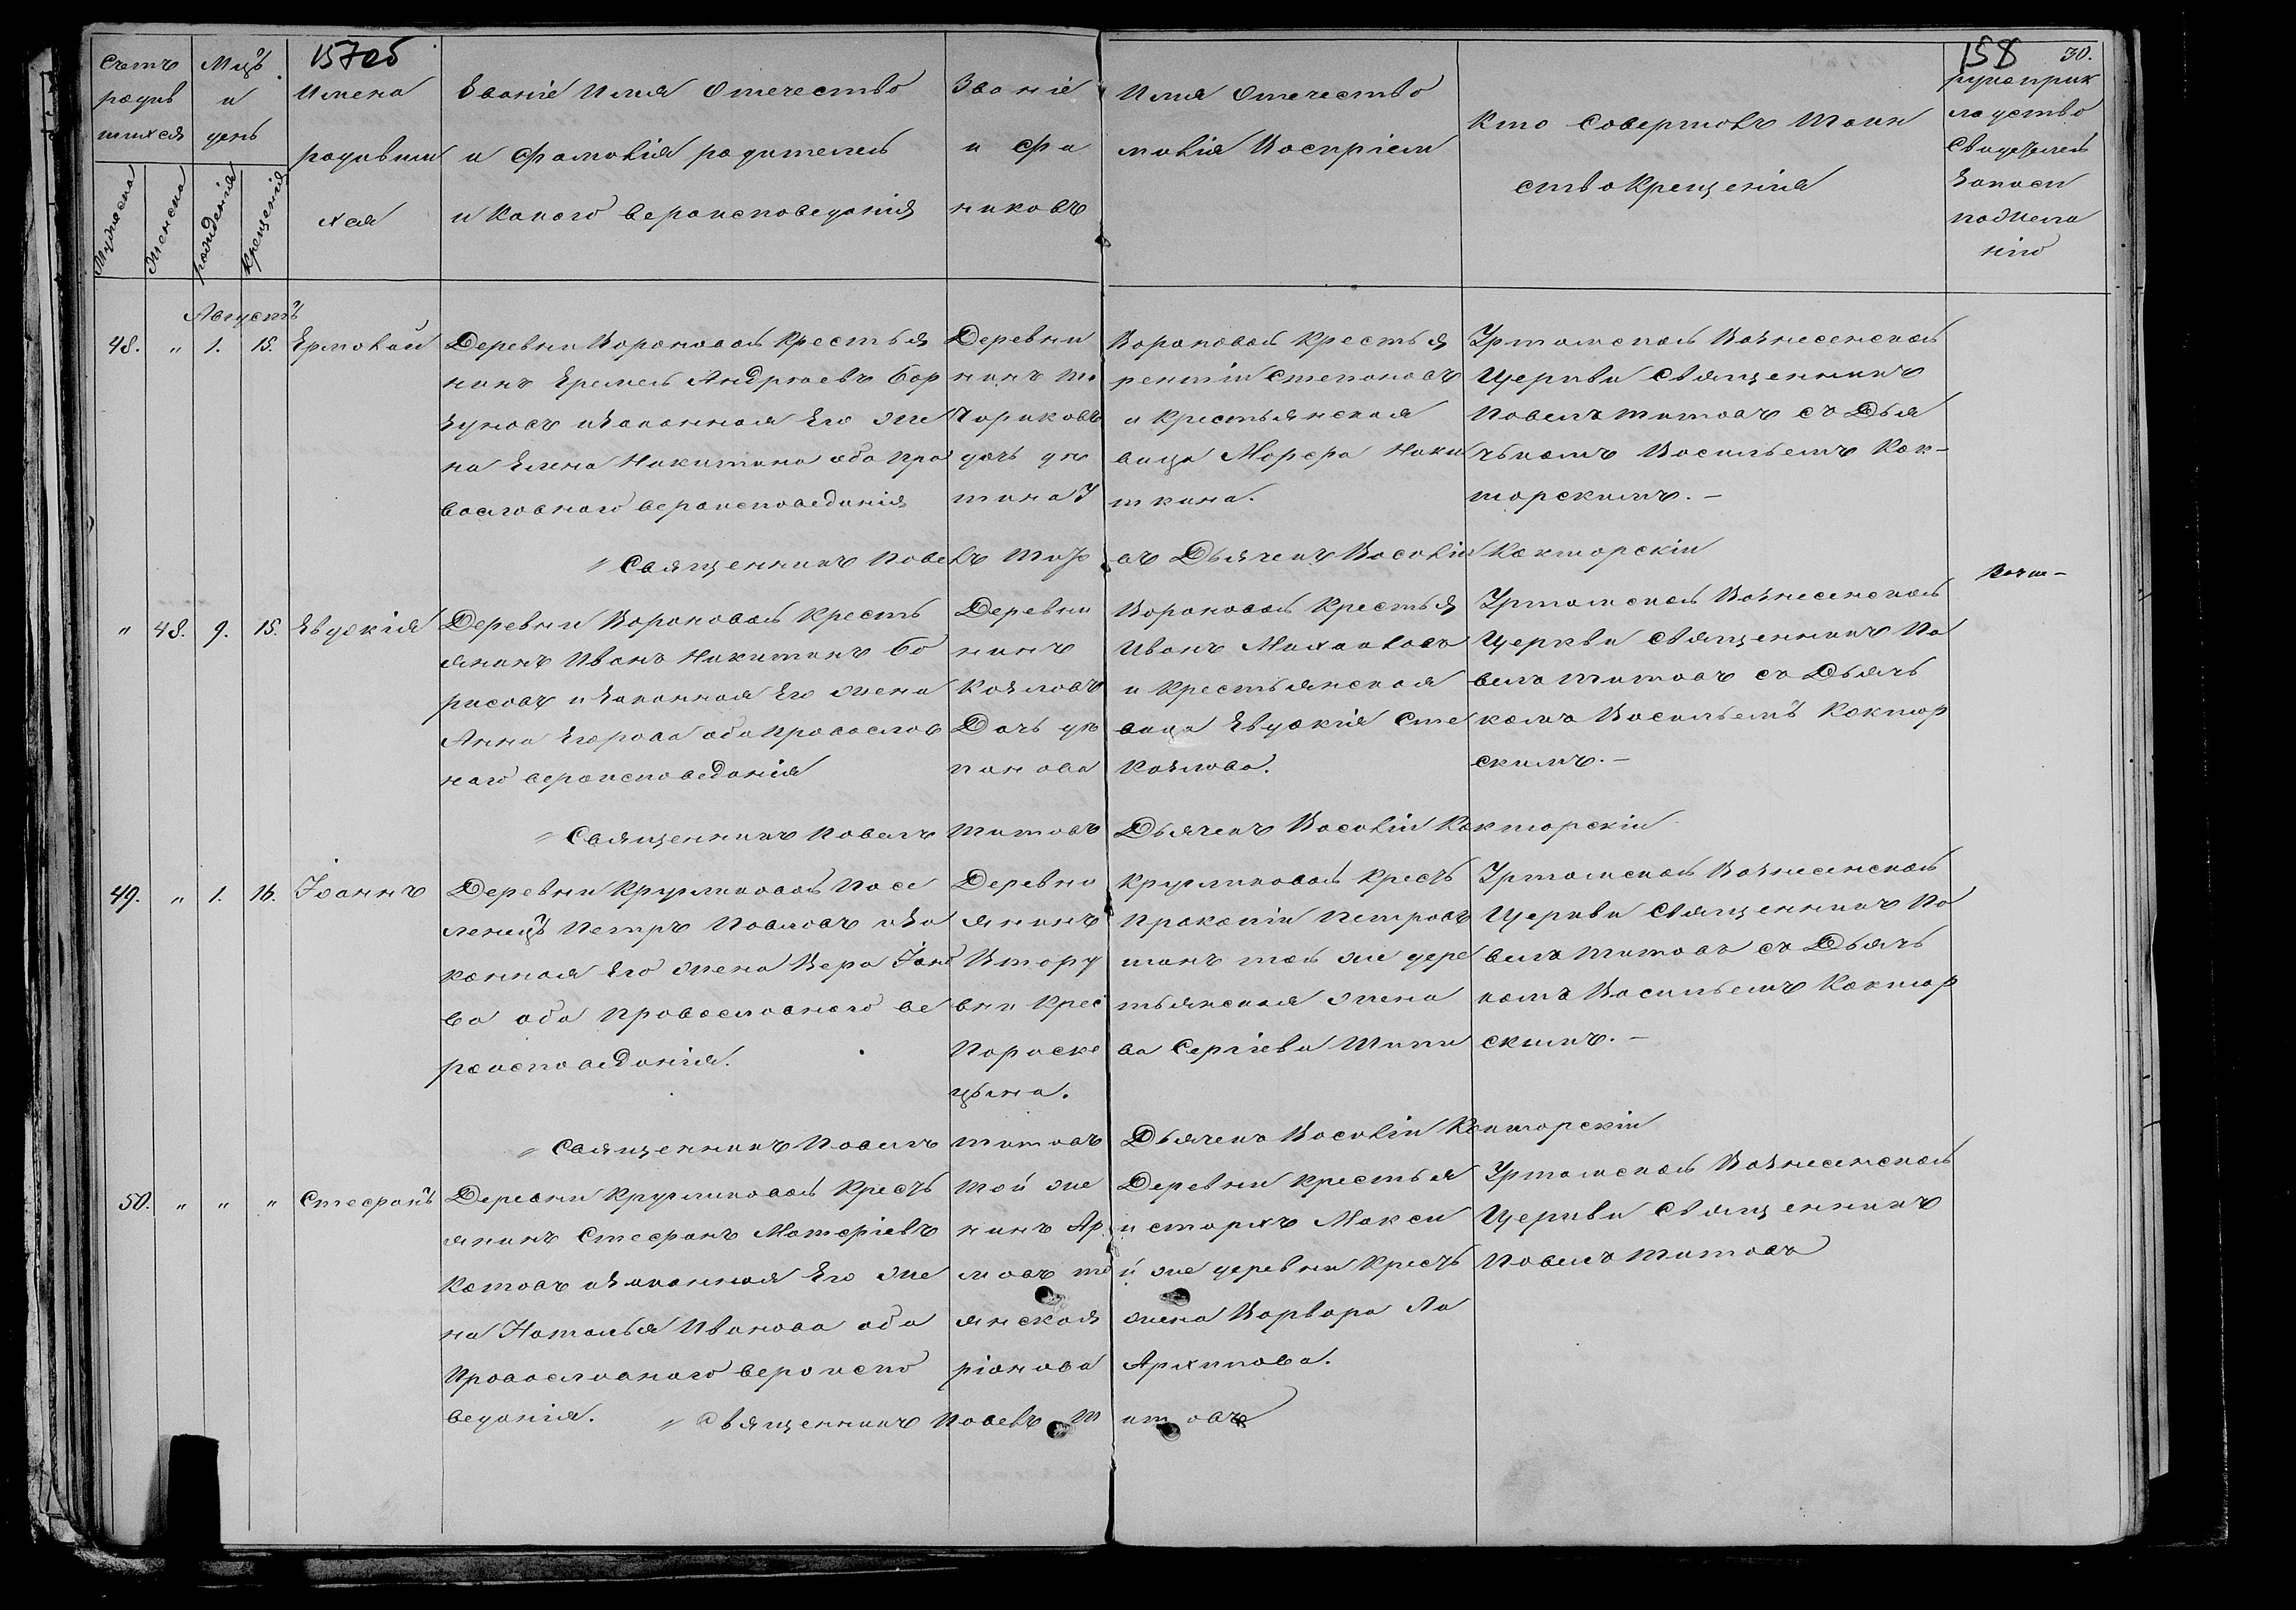 157об
158 30.
Счетъ родив шихся
Мужеска Женска
Мцъ и день
рожденія Крещенія
Имена родивши хся
Званіе Имя Отечество
и Фамилія родителей
и Какого вероисповеданія
Званіе Имя Отечество
и Фа милія Воспріем
никовъ
Кто Совершилъ Таин
ство Крещенія
рукоприк
ладство
Свидетелей
Записи
по Жела
нію
Августъ
48. " 1. 15. Ермолай
Деревни Вороновой Крестья
нинъ Еремей Андреевъ Бор
зуновъ изаконная Его же
на Елена Никитина оба пра
вославного вероисповеданія
Деревни Вороновой Крестья
нинъ Те рентій Степановъ
Чориковъ и Крестьянская
дочь де вица Марфа Ники
тина У ткина.
Уртамской Вознесенской
Церкви Священникъ
Павелъ Титовъ съ Дья
чькомъ Васильемъ Кок-
торскимъ. –
" Священникъ Павелъ Титовъ Дьячекъ Василій Кокторскій
" 48. 9. 15. Евдокія
Деревни Вороновой Кресть
янинъ Иванъ Никитинъ Бо
рисовъ изаконная Его жена
Анна Егорова оба Православ
наго вероисповеданія
Деревни Вороновой Крестья
нинъ Иванъ Михаиловъ
Козловъ и Крестьянская
Дочь де вица Евдокія Сте
панова Козлова.
Уртамской Вознесенской
Церкви Священникъ Па
велъ Титовъ съ Дьячь
комъ Васильемъ Коктор
скимъ. –
" Священникъ Павелъ Титовъ Дьячекъ Василій Кокторскій
49. " 1. 16. Іоаннъ
Деревни Кругликовой Посе
ленецъ Петръ Павловъ иза
конная Его жена Вера Іоно
ва оба Православного ве
роисповеданія.
Деревни Кругликовой Кресть
янинъ Прокопій Петровъ
Втору шинъ той же дере
вни Крес тьянская жена
Параске ва Сергіева Типи
цына.
Уртамской Вознесенской
Церкви Священникъ Па
велъ Титовъ съ Дьячь
комъ Васильемъ Коктор
скимъ. –
" Священникъ Павелъ Титовъ Дьячекъ Василій Кокторскій
50. " " " Стефанъ
Деревни Кругликовой Кресть
янинъ Стефанъ Матфіевъ
Котовъ изаконная Его же
на Наталья Иванова оба
Православного вероиспо
веданія.
Той же Деревни Крестья
нинъ Ар истархъ Макси
мовъ то й же деревни Кресть
янская жена Варвара Ла
ріонова Архипова.
Уртамской Вознесенской
Церкви Священникъ
Павелъ Титовъ
" Священникъ Павелъ Титовъ